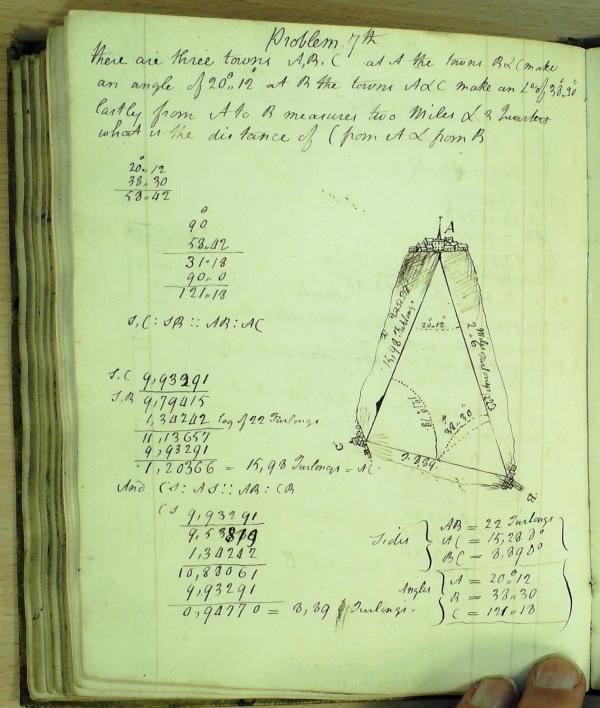 Problem 7th
there are three towns A, B, C at A the towns B & C make
an angle of 20°,,12 at B the towns A & C make an L° of 38°,,30
lastly from A to B measures two Miles & 3 Quarters
what is the distance of C from A & from B
20°,,12
38,,30
58,,42
90°
58,,42
31,,18
90,,0
121,,18
S,C : SB :: AB : AC
S.C 9,93291
S.B 9,79415
1,34242 log of 22 Furlongs
11,13657
9,93291
1,20366 = 15,98 Furlongs = AC
And CS : AS :: AB : CB
CS 9,93291
9,53819
1,34242
10,88061
9,93291
0,94770 = 8,89 Furlongs.
A
20°,,12
15,98 Furlongs
2 Miles 6 Furlongs
121°,,18
38°,,30
8,89
C
B
Sides
AB = 22 Furlongs
AC = 15,28 0°
BC = 8.89 0°
Angles
A = 20°,,12
B = 38,,30
C = 121,,18